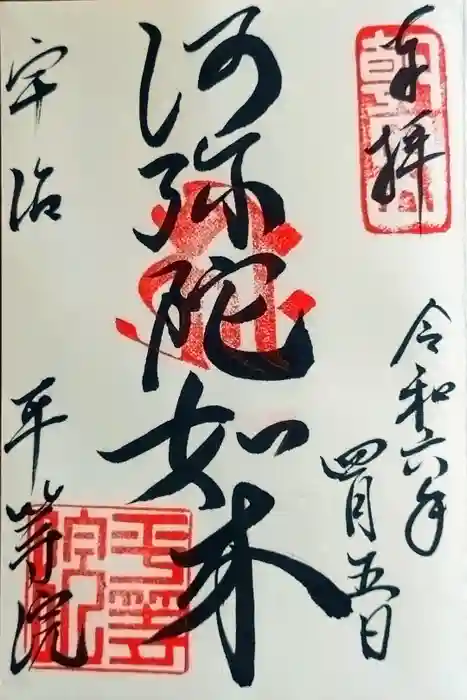 奉拝
令和六年
四月五日
阿弥陀如来
宇治 平等院